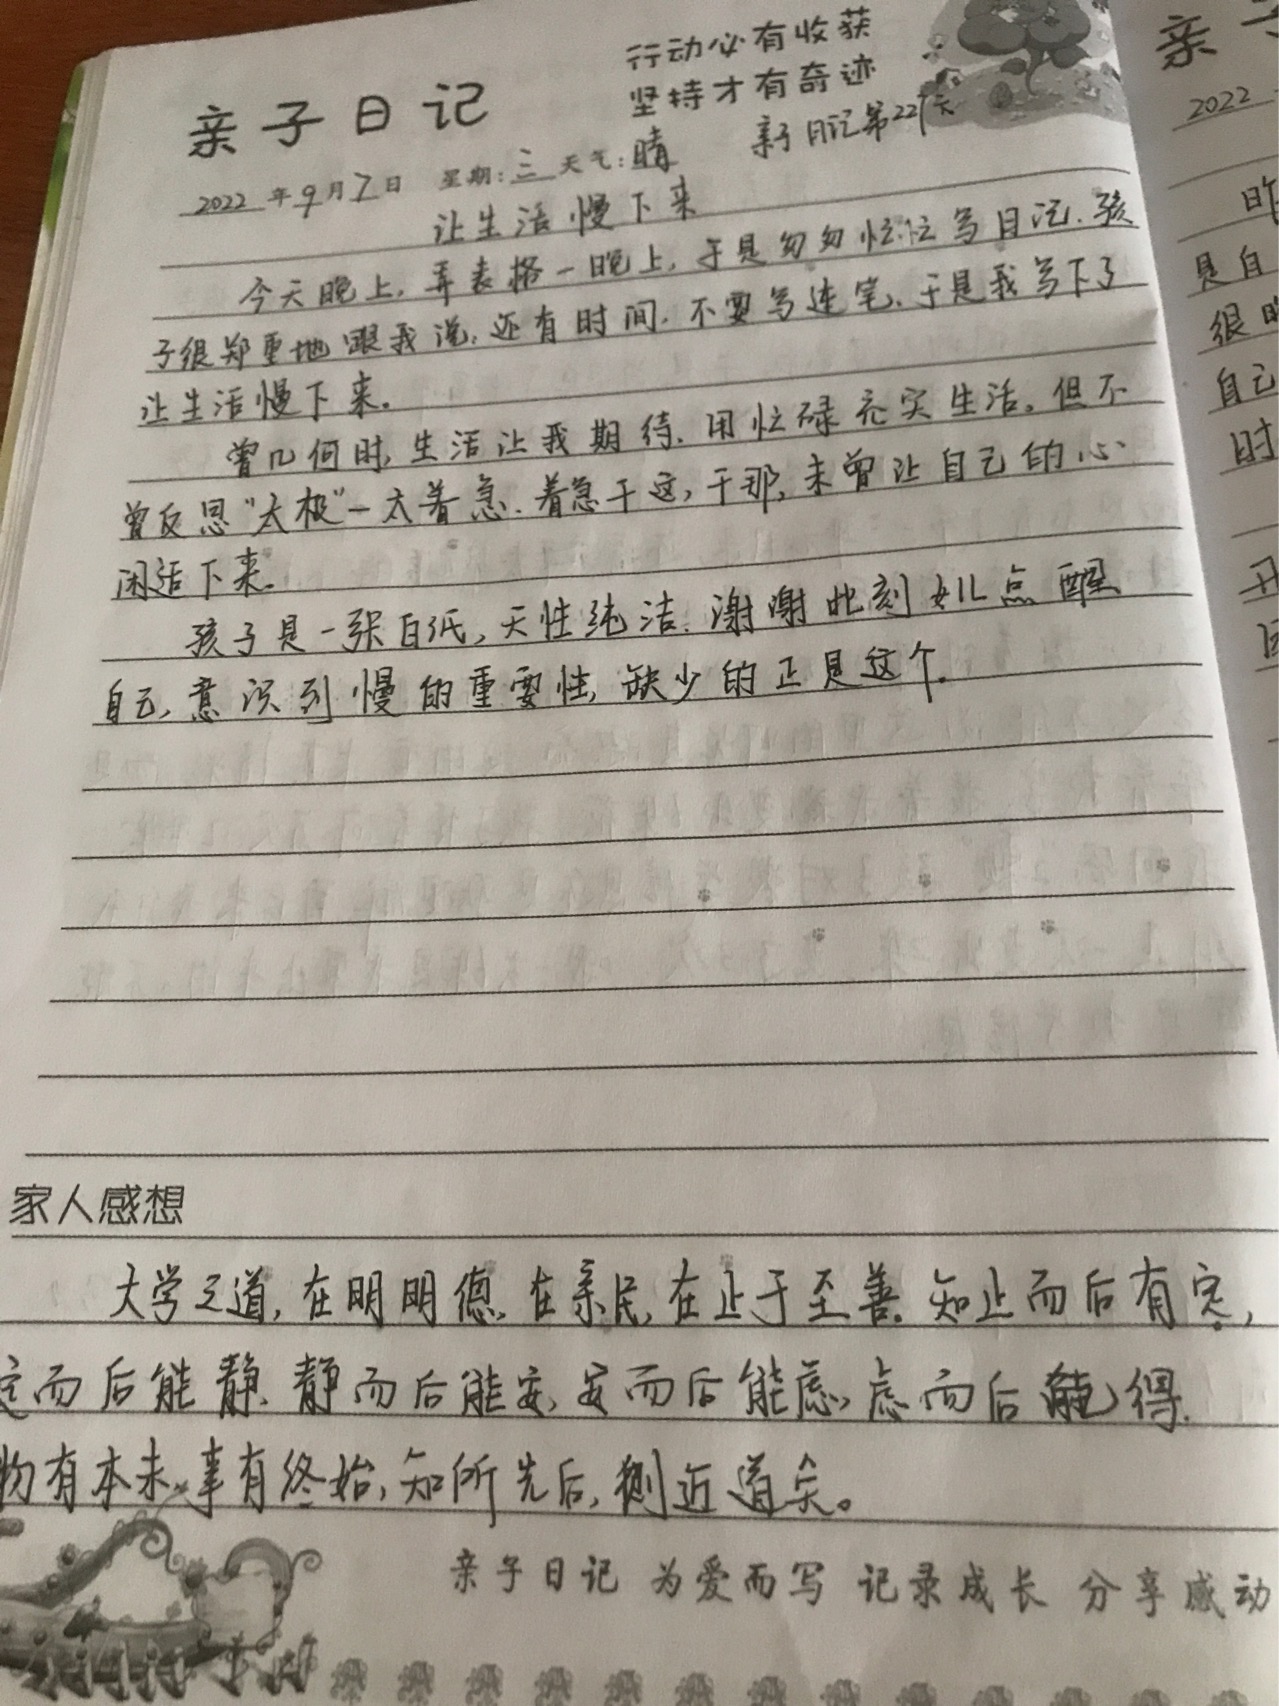 行动必有收获
坚持才有奇迹
亲子日记
亲子日记第227天
2022年9月7日 星期:三 天气:晴
让生活慢下来
今天晚上,弄表格一晚上,于是匆匆忙忙写日记.孩
子很郑重地跟我说,还有时间.不要写连笔.于是我写下了
让生活慢下来.
曾几何时,生活让我期待.用忙碌充实生活。但不
曾反思"太极"—太着急.着急干这,干那,未曾让自己的心
闲适下来.
孩子是一张白纸,天性纯洁.谢谢此刻女儿点醒
自己,意识到慢的重要性,缺少的正是这个.
家人感想
大学之道,在明明德,在亲民,在止于至善.知止而后有定,
定而后能静.静而后能安,安而后能虑,虑而后能得.
物有本末.事有终始,知所先后,则近道矣。
亲子日记 为爱而写 记录成长 分享感动
亲子
2022
昨
是自
很
自己
时